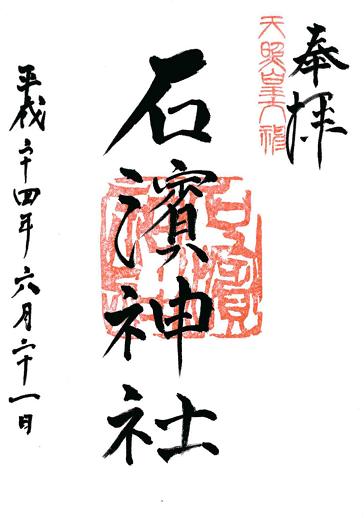 奉拝
天照皇大神
石濱神社
平成二十四年六月二十一日